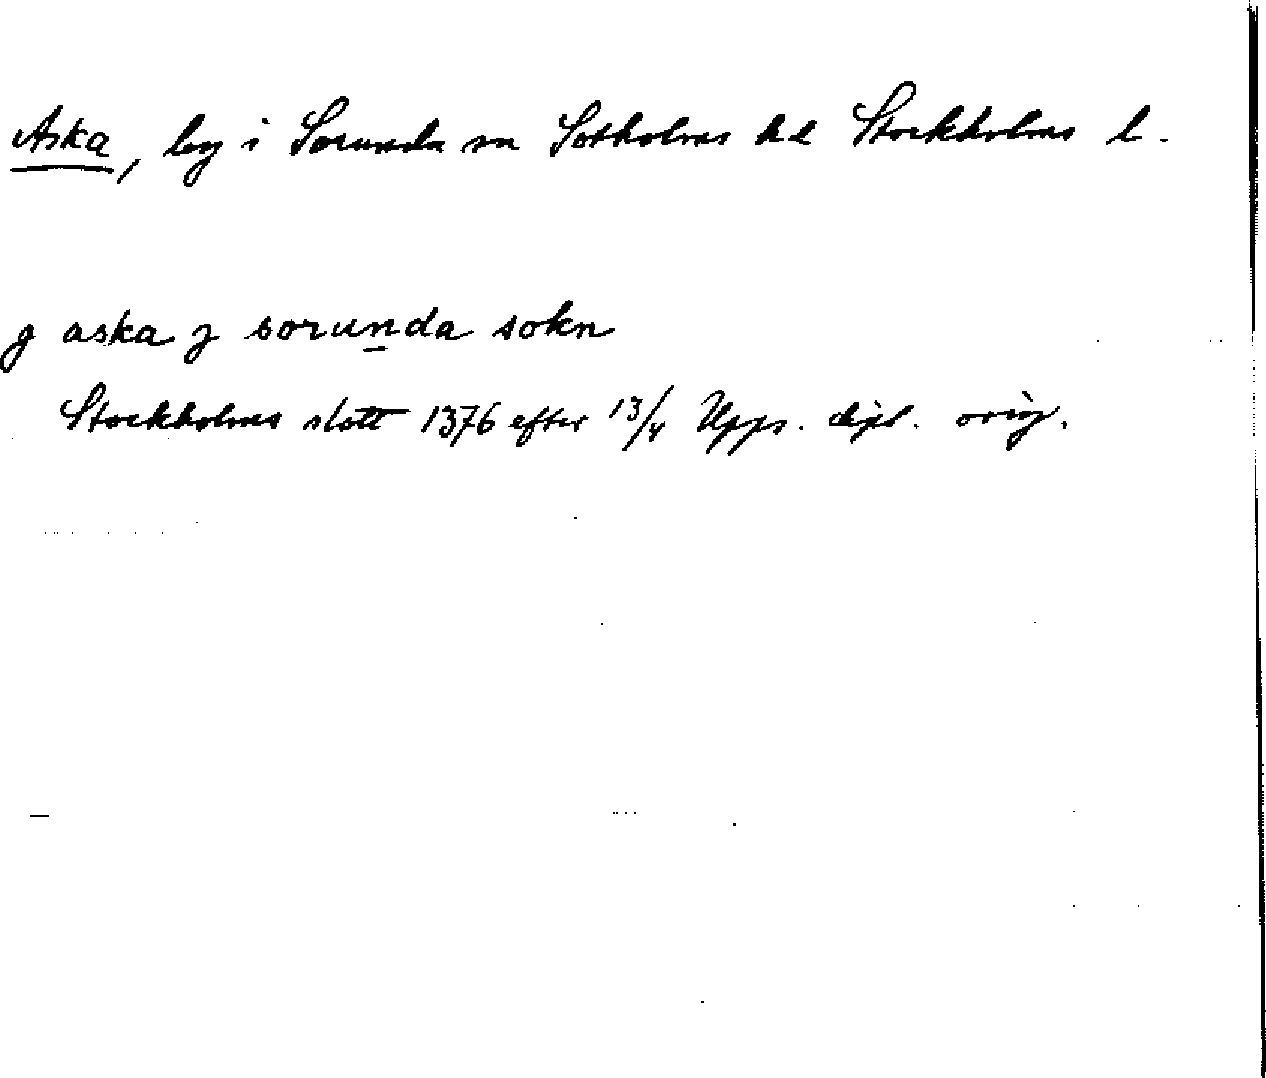 Aska, by i Sorunda sn Sotholms hd Stockholms l.
g aska j sorunda sokn
Stockholms slott 1376 efter 13/4 Upps. dipl. orig.